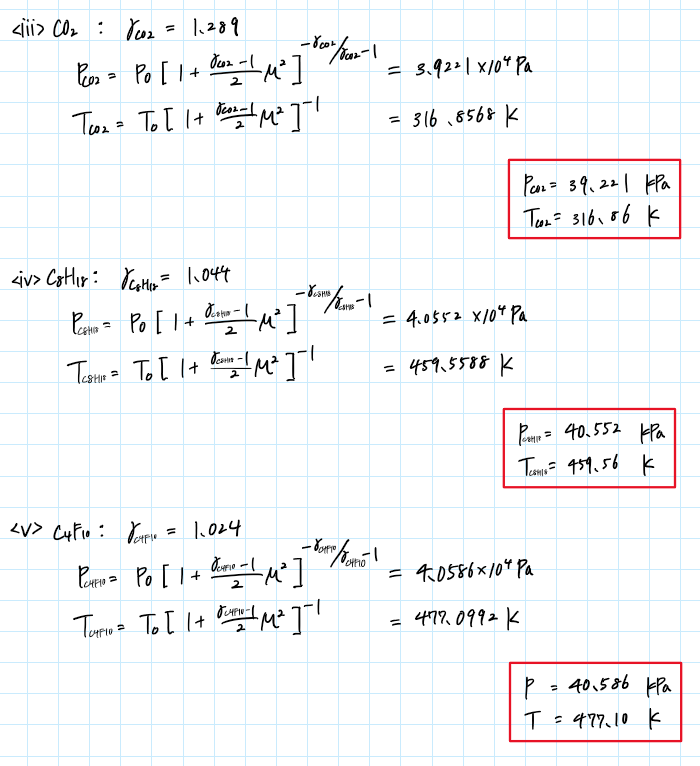 <iii> CO₂ : γco₂ = 1.289
Pco₂ = P₀ [ 1 + (γco₂-1)/2 M² ]^(-γco₂/γco₂-1) = 3.9221 ×10⁴ Pa
Tco₂ = T₀ [ 1 + (γco₂-1)/2 M² ]^-1 = 316.8568 K
Pco₂ = 39.221 kPa
Tco₂ = 316.86 K
<iv> C₈H₁₈ : γC₈H₁₈ = 1.044
PC₈H₁₈ = P₀ [ 1 + (γC₈H₁₈-1)/2 M² ]^(-γC₈H₁₈/γC₈H₁₈-1) = 4.0552 ×10⁴ Pa
TC₈H₁₈ = T₀ [ 1 + (γC₈H₁₈-1)/2 M² ]^-1 = 459.5588 K
PC₈H₁₈ = 40.552 kPa
TC₈H₁₈ = 459.56 K
<v> C₄F₁₀ : γC₄F₁₀ = 1.024
PC₄F₁₀ = P₀ [ 1 + (γC₄F₁₀-1)/2 M² ]^(-γC₄F₁₀/γC₄F₁₀-1) = 4.0586×10⁴ Pa
TC₄F₁₀ = T₀ [ 1 + (γC₄F₁₀-1)/2 M² ]^-1 = 477.0992 K
P = 40.586 kPa
T = 477.10 K